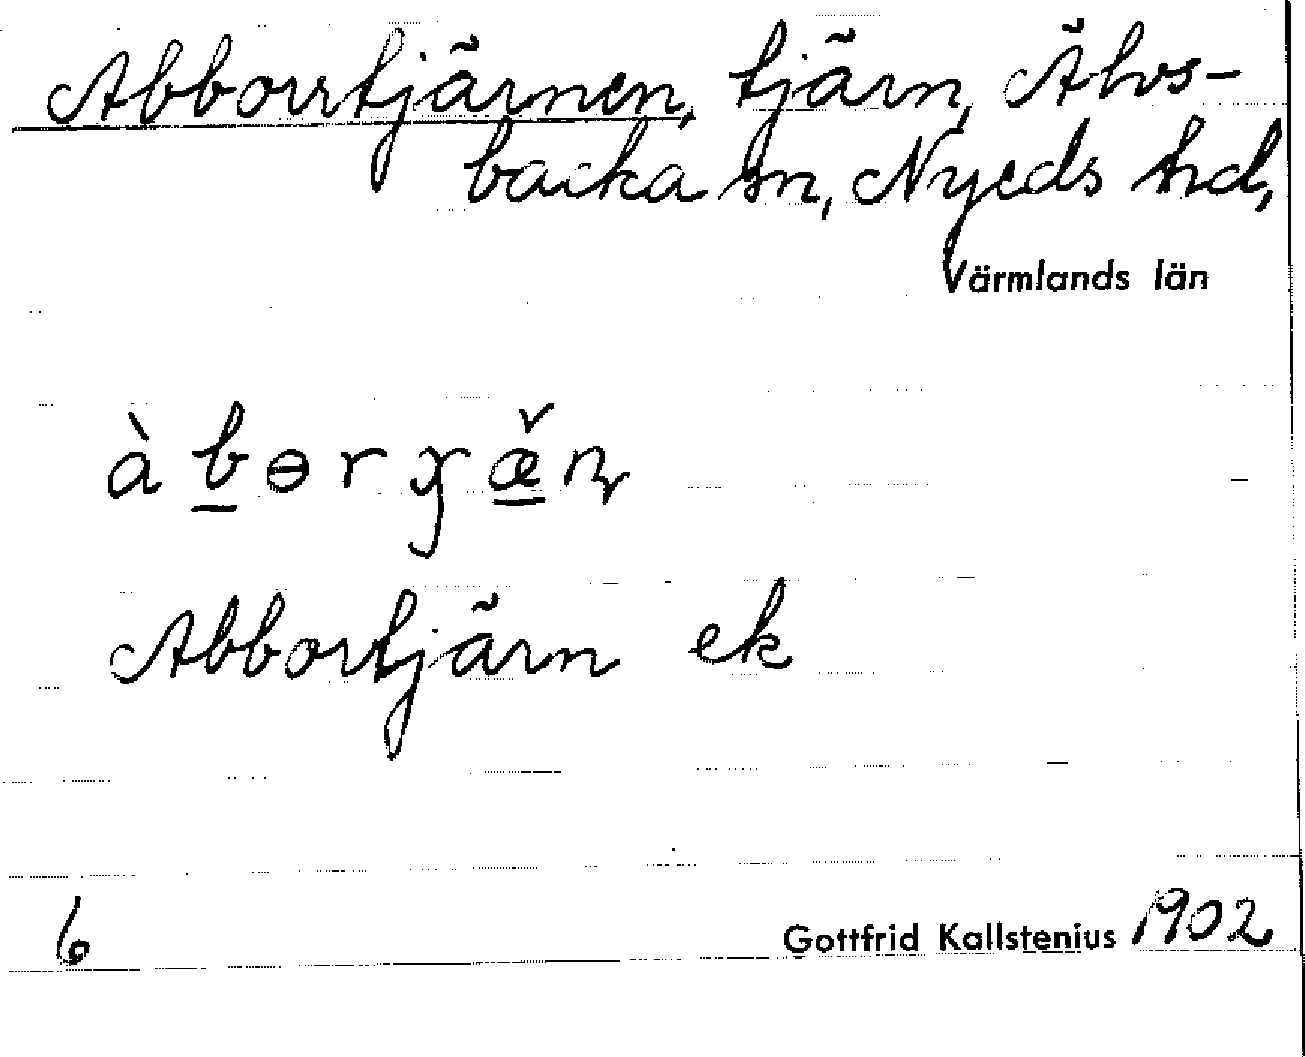 Abborrtjärnen, tjärn, Älvs-
backa sn, Nyeds hd,
Värmlands län
àbɵrɣæ̌ɳ
Abbortjärn ek
6
Gottfrid Kallstenius 1902